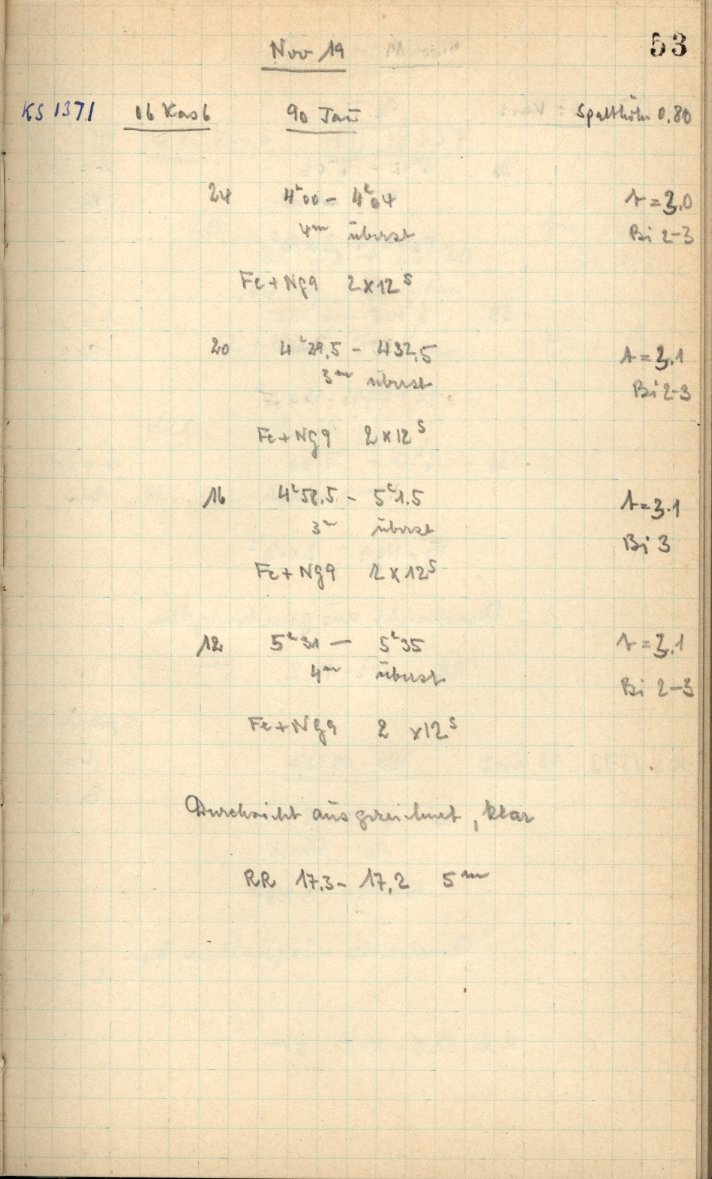 53
Nov 19
KS 1371 16 Kas b 90 Tau Spalthöhe 0,80
24 4h00 - 4h04 t = 3,0
4m überst Bi 2-3
Fe + Ng9 2x12s
20 4h29,5 - 432,5 t = 3.1
3m überst Bi 2-3
Fe + Ng9 2x12s
16 4h58,5 - 5h1.5 t = 3.1
3m überst
Bi 3
Fe + Ng9 2x12s
12 5h31 - 5h35 t = 3.1
4m überst Bi 2-3
Fe + Ng9 2 x12s
Durchsicht ausgezeichnet, klar
RR 17.3 - 17,2 5m